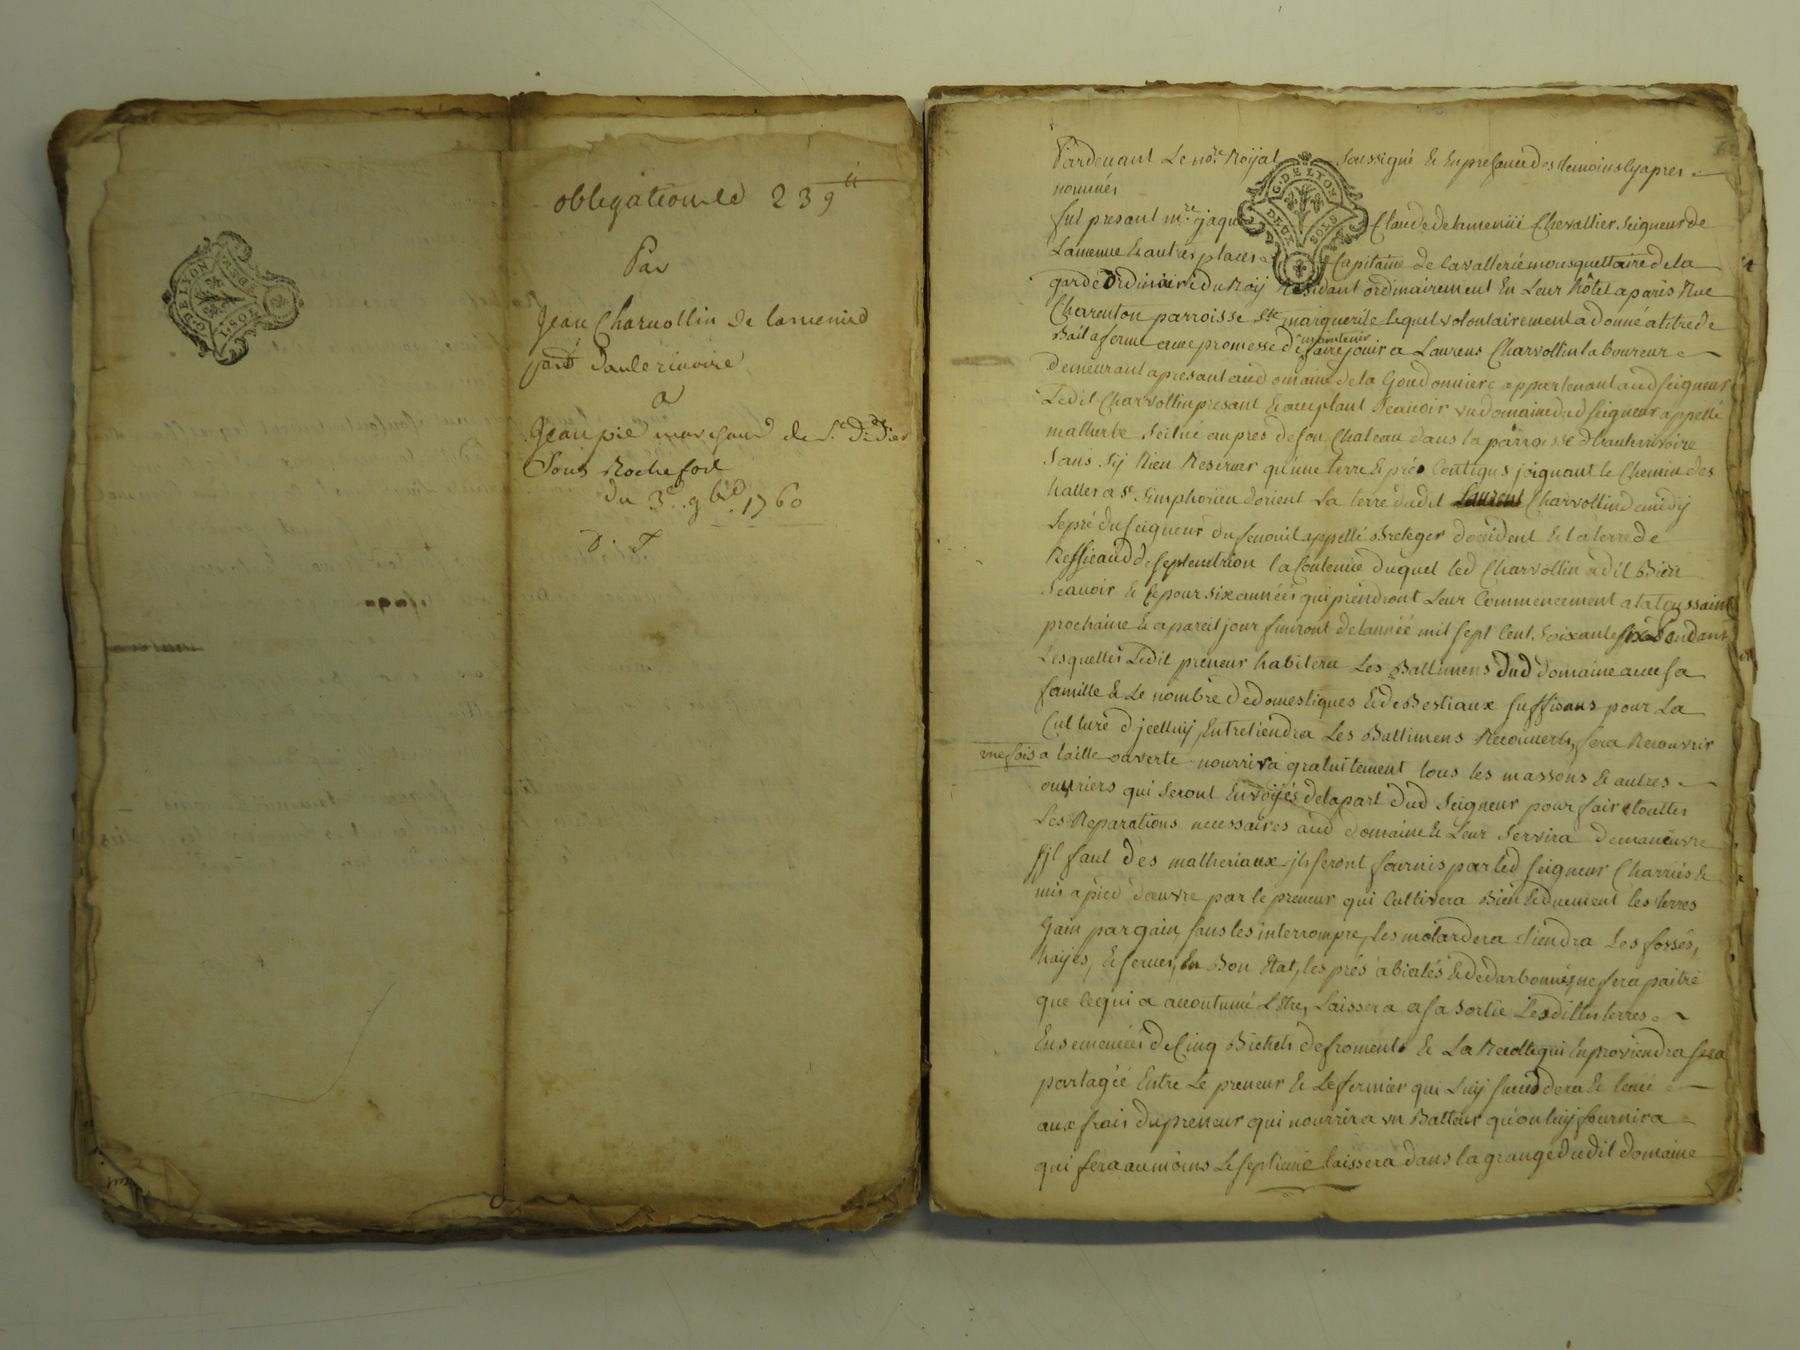 obligation de 239ᵗᵗ
Par
Jean Charvollin de lamenüe
parᵉ dauterivoire
a
Jean pié marchand de Sᵗ Didier
Sous Rochefort
du 3ᵉ 9bʳᵉ 1760
D. T
G. DE LYON
Pardevant Le noʳᵉ Royal soussigné & en presence des temoins cy apres
nommés
fut present mʳᵉ jaque Claude de lamenüe Chevallier Seigneur de
Lamenue & autres places Capitaine de Cavallerie mousquettaire de la
garde ordinaire du Roy Residant ordinairement En Leur hôtel a paris Rue
Charenton parroisse Sᵗᵉ marguerite lequel volontairement a donné a titre de
Bail a ferme avec promesse de maintenir faire jouir a Laurens Charvollin laboureur
demeurant apresant au domaine de la Goudonniere appartenant aud seigneur
Ledit Charvollin presant & acceptant Scavoir un domaine dud seigneur appellé
malherbe Scitué au pres de son Chateau dans la parroisse d'hauterivoire
Sans Sy Rien Reserver qu'une terre & pré Contigus joignant le Chemin des
halles a Sᵗ Simphorien dorient La terre dudit Laurent Charvollin de midy
Le pré du seigneur du fenouil appellé Breteger d'occident & la terre de
Ressicaud de septentrion la Contenue duquel led Charvollin a dit Bien
Scavoir & Ce pour six années qui prendront Leur Commencement a la toussaint
prochaine & a pareil jour finiront de l'année mil sept Cent Soixante six Pendant
Lesquelles Ledit preneur habitera Les Battimens dud domaine avec sa
famille & Le nombre de domestiques & de Bestiaux suffisans pour La
Culture d'jcelluy, Entretiendra Les Battimens Recouverts, fera Recouvrir
une fois a taille ouverte nourrira gratuitement tous les massons & autres
ouvriers qui seront Envoyés de la part dud Seigneur pour faire touttes
Les Reparations necessaires aud domaine & Leur Servira de manœuvre
sjl faut des matheriaux jls seront fournis par led seigneur Charriés &
mis a pied d'œuvre par le preneur qui Cultivera Bien & duement les terres
Gain par gain, sans les interrompre, Les motardera tiendra Les fossés,
hayes, & serves, en Bon Etat, les prés abialés & dedarbonnés, ne fera paitre
que Ce qui a accoutumé L'être, Laissera a sa sortie Lesdittes terres
Ensemencées de Cinq Bichets de froment & La Recolte qui En proviendra sera
partagée Entre Le preneur & Le fermier qui Luy succedera & levée
aux frais du preneur qui nourrira un Batteur qu'on luy fournira
qui sera au moins Le septieme laissera dans la grange dudit domaine
G. DE LYON
DEUX SOLS